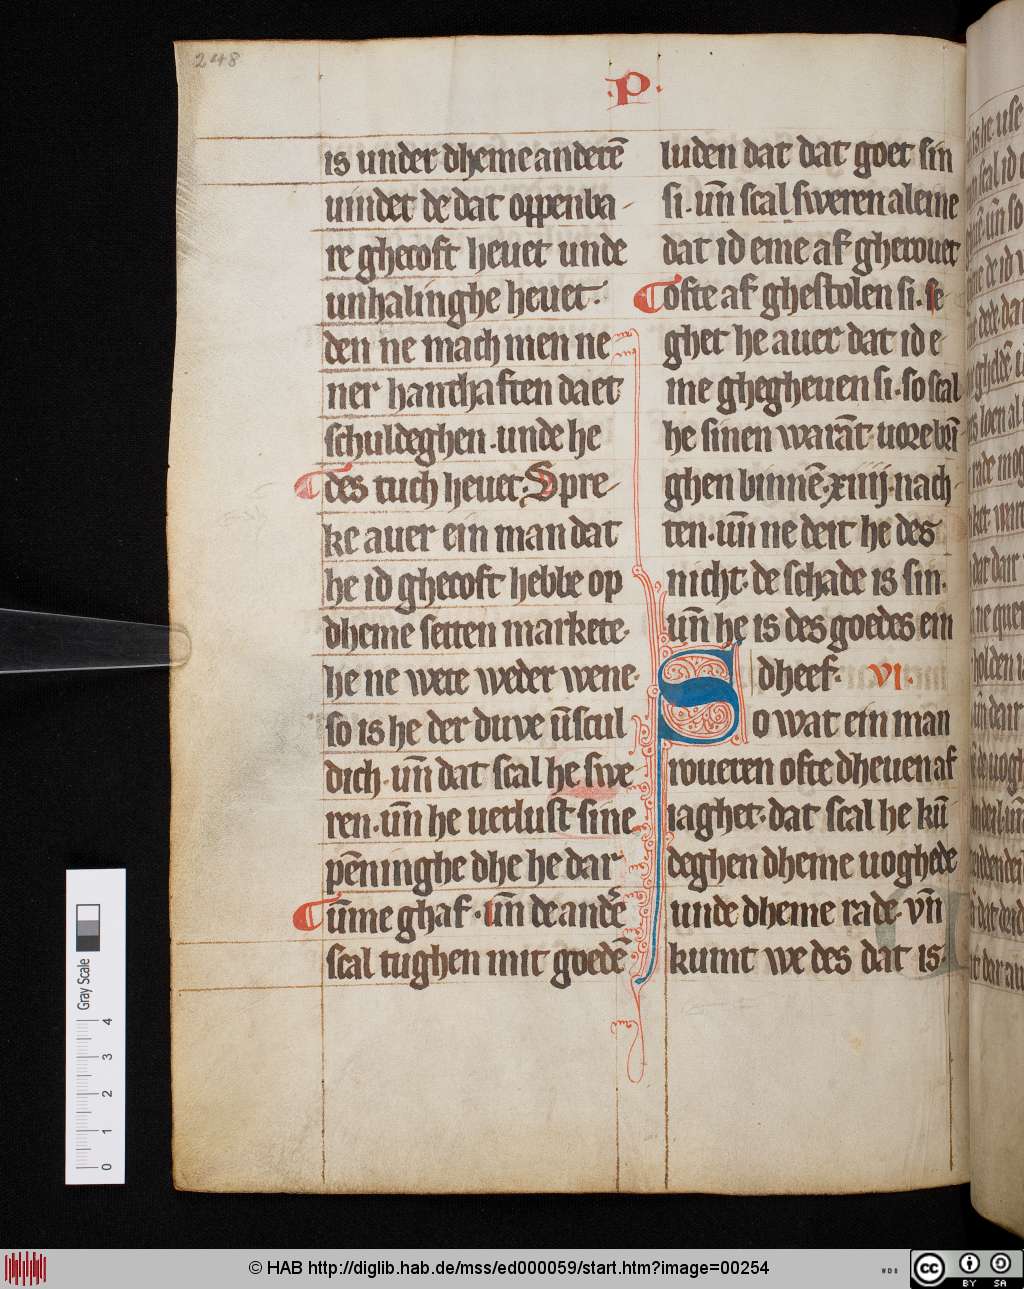 248
.P.
is under dheme anderē
uindet de dat oppenba
re ghecoft heuet unde
unhalinghe heuet.
den ne mach men ne
ner hanthaften daet
schuldeghen. unde he
des tuch heuet. Spre
ke auer ein man dat
he id ghecoft hebbe op
dheme setten markete.
he ne wete weder wene.
so is he der duve ūscul
dich. un̄ dat scal he swe
ren. un̄ he uerlust sine
pēninghe dhe he dar
ūme ghaf. un̄ de andē
scal tughen mit goedē
luden dat dat goet sin
si. un̄ scal sweren aleine
dat id eme af gherouet
ofte af ghestolen si. se
ghet he auer dat id e
me ghegheuen si. so scal
he sinen warāt uore brī
ghen binnē. xiiij. nach
ten. un̄ ne deit he des
nicht. de schade is sin.
un̄ he is des goedes ein
dheef. VI.
So wat ein man
roueren ofte dheuen af
iaghet. dat scal he kū
deghen dheme uoghede
unde dheme rade. vn̄
kumt we des dat is.
Gray Scale
4
3
2
1
0
© HAB http://diglib.hab.de/mss/ed000059/start.htm?image=00254
WDB
cc BY SA